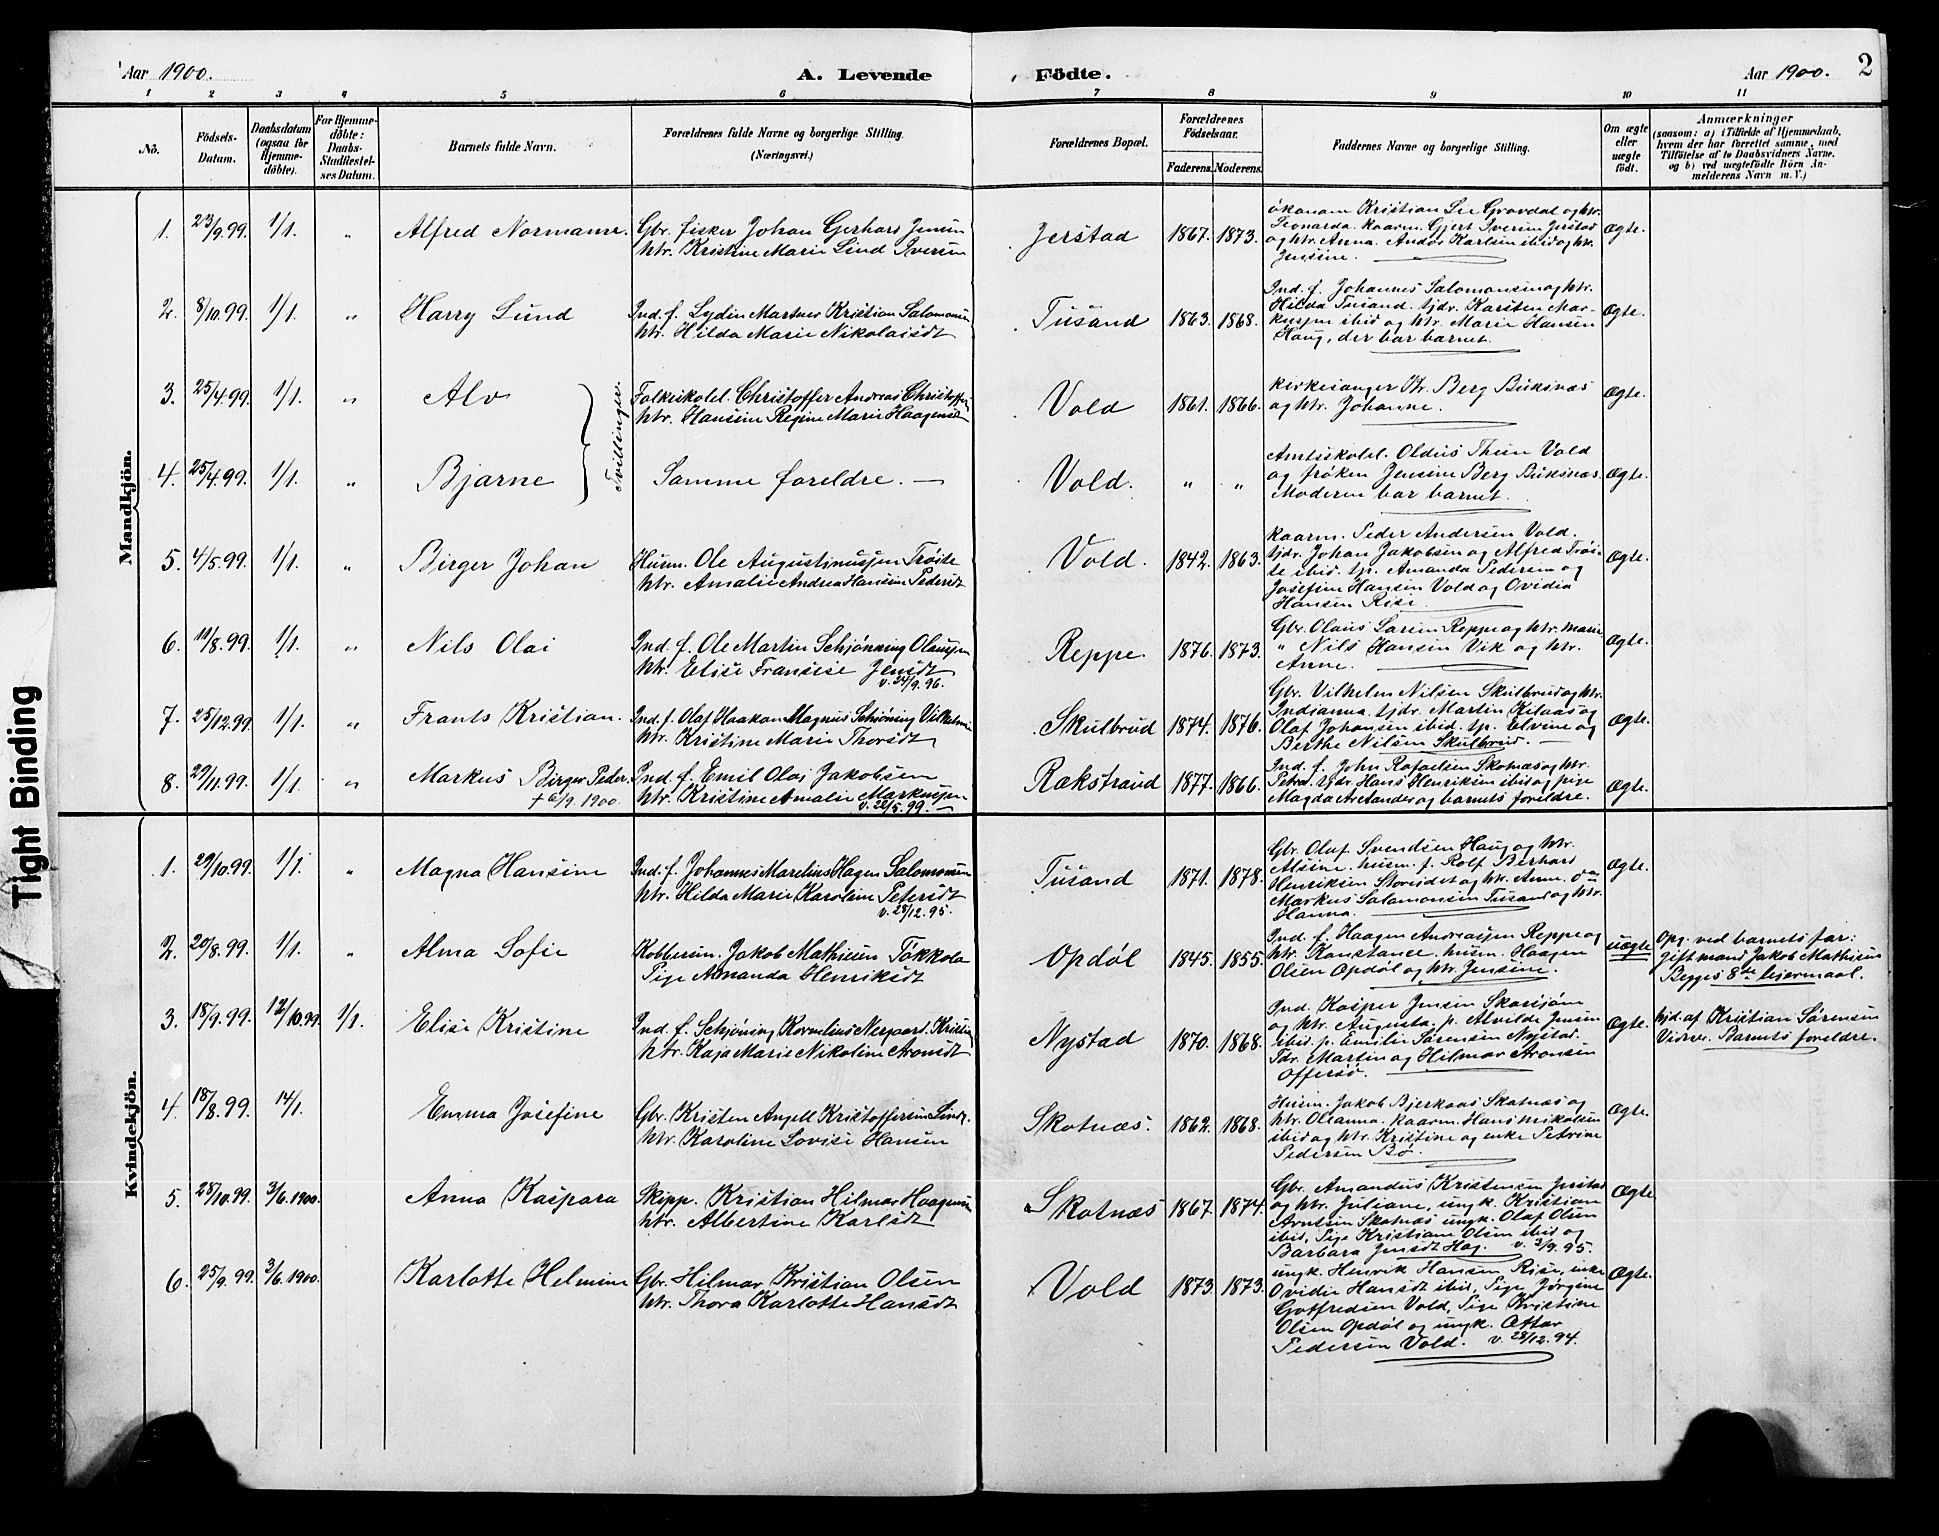 Aar 1900.
A. Levende
Födte.
Aar 1900.
2
1 2 3 4 5 6 7 8 9 10 11
No.
Födsels-Datum.
Daabsdatum (ogsaa for Hjemme-döbte).
For Hjemme-döbte: Daabs-Stadfæstel-ses Datum.
Barnets fulde Navn.
Forældrenes fulde Navne og borgerlige Stilling. (Næringsvei.)
Forældrenes Bopæl.
Forældrenes Födselsaar.
Faderens. Moderens.
Faddernes Navne og borgerlige Stilling.
Om ægte eller uægte födt.
Anmærkninger
(saasom: a) i Tilfælde af Hjemmedaab, hvem der har forrettet samme, med Tilföielse af to Daabsvidners Navne, og b) ved uægtefödte Börn Anmelderens Navn m. V.)
Mandkjön.
1. 23/9.99. 1/1. " Alfred Normann. Gbr. fisker Johan Gerhard Jensen
htr. Kristine Marie Lind Iversen
Jerstad 1867. 1873.
Kristian
og htr. Anna. Karlsen ibid og htr.
Jensine. Ægte.
2. 8/10.99. 1/1. " Harry Lund Ind. f. Kristian Salomonsen
htr. Hilda Marie Nikolaisdt
Tusand 1863. 1868.
Ind. f. Johannes Salomonsen og htr.
Hilda Tusand. tjdr. Karsten Mar-
kussen ibid og htr. Marie Hansen
Haug, der bar barnet. Ægte.
3. 25/4.99. 1/1. " Alv
Tvillinger.
htr. Hansine Regine Marie Haagensdt
Vold 1861. 1866.
Kirkesanger Berg Buksnæs
og htr. Johanne. Ægte.
4. 25/4.99. 1/1. " Bjarne Samme foreldre. —
Vold. " "
Amtsskolel. Thun Vold
og frøken Jensine Berg Buksnæs.
Moderen bar barnet. Ægte.
5. 4/5.99. 1/1. " Birger Johan Husm. Ole Augustinussen Trøite
htr. Amalie Andrea Hansine Pedersdt
Vold. 1842. 1863.
Kaarm. Peder Andersen Vold.
tjdr. Johan Jakobsen og Alfred Trøi-
te ibid. tp. Amanda Pedersen og
Josefine Hansen Vold og Ovidia
Hansen Rise. Ægte.
6. 11/8.99. 1/1. " Nils Olai Ind. f. Ole Martin Schjønning Olausen
htr. Elise Fransise Jensdt
v. 24/9.96.
Reppe 1876. 1873.
Gbr. Olaus Larsen Reppe og htr. Marie
" Nils Hansen Vik og htr.
Anne. Ægte.
7. 25/12.99. 1/1. " Frants Kristian. Ind. f. Olaf Haakon Magnus Schjøning Vilhelmsen
htr. Kristine Marie Thorsdt
Skulbrud 1874. 1876.
Gbr. Vilhelm Nilsen Skulbrud og htr.
Indianna. tjdr. Martin og
Olaf Johansen ibid. tp. Elvine og
Berthe Nilsen Skulbrud. Ægte.
8. 29/11.99. 1/1. " Markus Birger Peder.
† 6/9. 1900.
Ind. f. Emil Olai Jakobsen
htr. Kristine Amalie Markussen
v. 28/5.99.
Rakstraud 1877. 1866.
Ind. f. John Rafaelsen Skotnæs og htr.
Petra. tjdr. Hans Henriksen ibid og pige
Magda og barnets foreldre. Ægte.
Kvindekjön.
1. 29/10.99. 1/1. " Magna Hansine Ind. f. Johannes Marelius Hagen Salomonsen
htr. Hilda Marie Karoline Petersdt
v. 28/12.95.
Tusand 1871. 1878.
Gbr. Olaf Svendsen Haug og htr.
Alsine. husm. f. Rolf
Henriksen og htr. Anna.
Markus Salomonsen Tusand og htr.
Hanna. Ægte.
2. 20/8.99. 1/1. " Alma Sofie Jakob Mathisen
Pige Amanda Henriksdt
Opdøl 1845. 1855.
Ind. f. Haagen Andreassen Reppe og
htr. Konstance. husm. Haagen
Olsen Opdøl og htr. Jensine. uægte
Opg. ved barnets far:
gift mand Jakob Mathisen
Begges 8de leiermaal.
3. 18/9.99. 12/10.99. 1/1. Elise Kristine Ind. f. Schjøning Kornelius
htr. Kaja Marie Nikoline Aronsdt
Nystad 1870. 1868.
Ind. Kasper Jensen
og htr. Augusta. p. Alvilde Jensen
ibid. p. Emilie Sørensen Nystad.
Martin og Hilmar Aronsen
Offersø. Ægte.
hjd. af Kristian Sørensen
Barnets foreldre.
4. 18/8.99. 14/1. Emma Josefine Gbr. Kristen Angell Kristoffersen Lind.
htr. Karoline Lovise Hansen
Skotnæs. 1862. 1868.
Husm. Jakob Skotnæs og
htr. Oleanna. Kaarm. Hans Nikolsen
ibid og htr. Kristine og enke Petrine
Pedersen Bø. Ægte.
5. 28/10.99. 3/6.1900. Anna Kaspara Skipp. Kristian Hilmar Haagensen
htr. Albertine Karlsdt
Skotnæs 1867. 1874.
Gbr. Amandus Kristensen Jerstad
og htr. Juliane, ungk. Kristian
Arntsen Skotnæs ungk. Olaf Olsen
ibid, Pige Kristiane Olsen ibid og
Barbara Jensdt Hag. v. 3/9.95. Ægte
6. 25/9.99. 3/6.1900. Karlotte Helmine Gbr. Hilmar Kristian Olsen
htr. Thora Karlotte Hansdt
Vold 1873. 1873.
ungk. Henrik Hansen Rise, enke
Ovidie Hansdt ibid, Pige Jørgine
Gotfredsen Vold, Pige Kristine
Olsen Opdøl og ungk. Ottar
Pedersen Vold. v. 28/12.94. Ægte.
Tight Binding